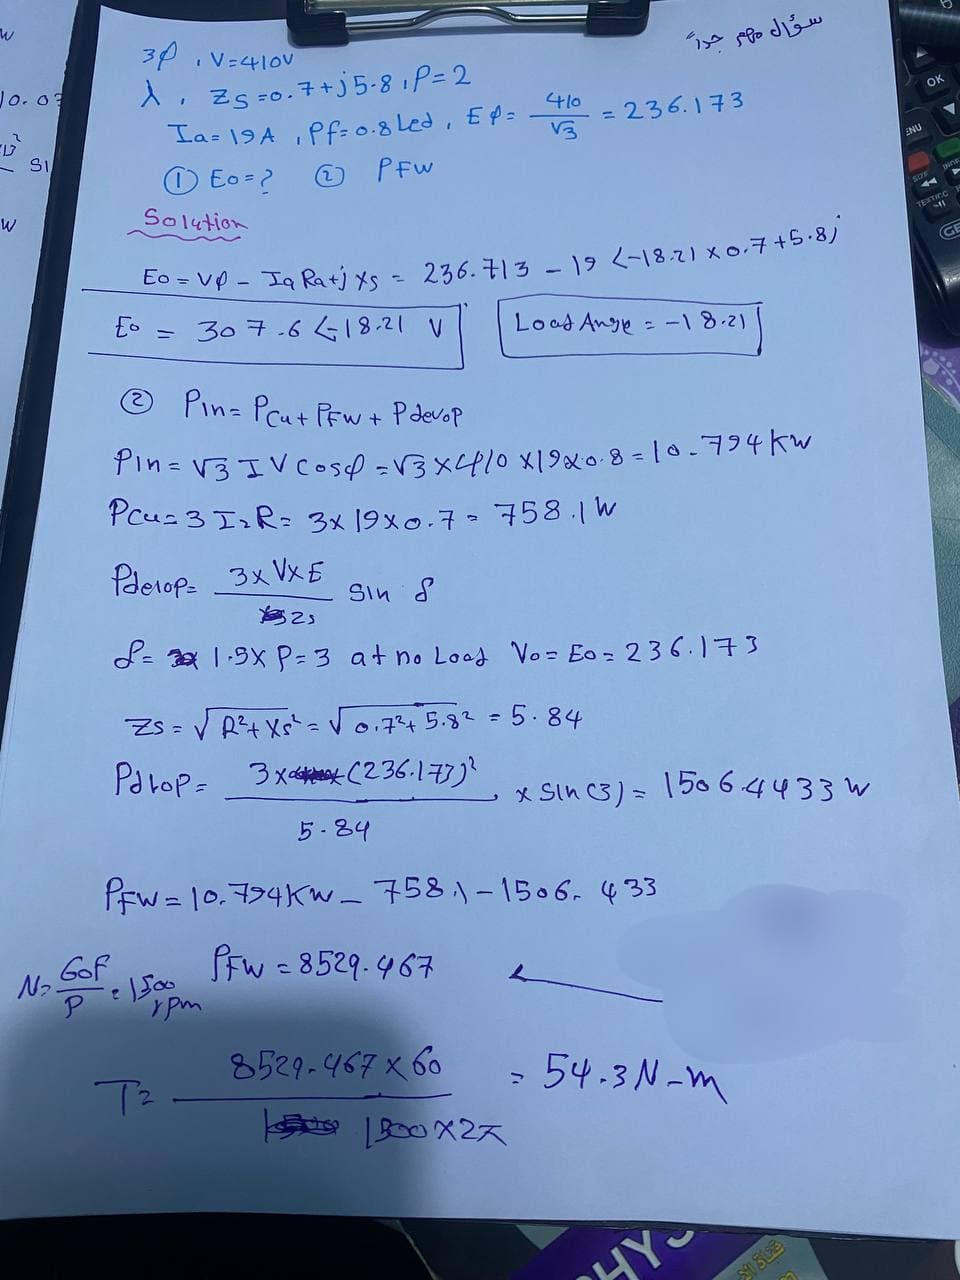 سؤال مهم جداً
3φ , V=410V
λ , Zs=0.7+j5.8 , P=2
Ia=19A , Pf=0.8 Led , Eφ= 410/√3 = 236.173
① Eo=? ② PFW
Solution
Eo = Vφ - Ia Ra+j Xs = 236.713 - 19 <-18.21 x 0.7+5.8j
Eo = 307.6 <-18.21 V
Load Ange = -18.21
② Pin= Pcu + PFW + Pdevop
Pin= √3 I V Cosφ = √3 x 410 x 19 x 0.8 = 10.794 KW
Pcu= 3 I2R= 3x 19 x 0.7 = 758.1 W
Pdevop= 3xVxE / Zs Sin δ
δ= 1.5x P=3 at no Load Vo= Eo= 236.173
Zs = √R²+Xs² = √0.7²+5.8² = 5.84
Pdvop= 3x(236.173)² / 5.84 x Sin(3) = 1506.4433 W
PFW = 10.794KW - 758.1 - 1506.433
PFW = 8529.467
N= 60F/P = 1500 rpm
T= 8529.467 x 60 / 1500 x 2π = 54.3 N-m
OK
PHYS